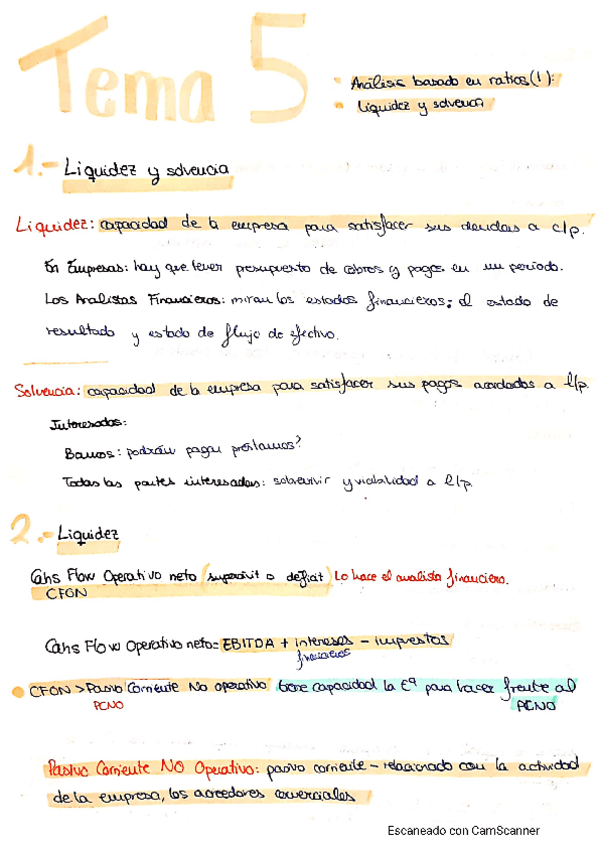 Tema 5
• Análisis basado en ratios(1):
• Liquidez y solvencia
1.- Liquidez y solvencia
Liquidez: capacidad de la empresa para satisfacer sus deudas a c/p.
En Empresas: hay que tener presupuesto de cobros y pagos en un periodo.
Los Analistas Financieros: miran los estados financieros: el estado de
resultado y estado de flujo de efectivo.
Solvencia: capacidad de la empresa para satisfacer sus pagos acordados a l/p.
Interesados:
Bancos: podrán pagar préstamos?
Todas las partes interesadas: sobrevivir y viabilidad a l/p.
2.- Liquidez
Cahs Flow Operativo neto (superávit o deficit) Lo hace el analista financiero.
CFON
Cahs Flow Operativo neto= EBITDA + intereses - impuestos
financieros
• CFON > Pasivo Corriente No operativo tiene capacidad la Eª para hacer frente al
PCNO PCNO
Pasivo Corriente NO Operativo: pasivo corriente - relacionado con la actividad
de la empresa, los acreedores comerciales
Escaneado con CamScanner